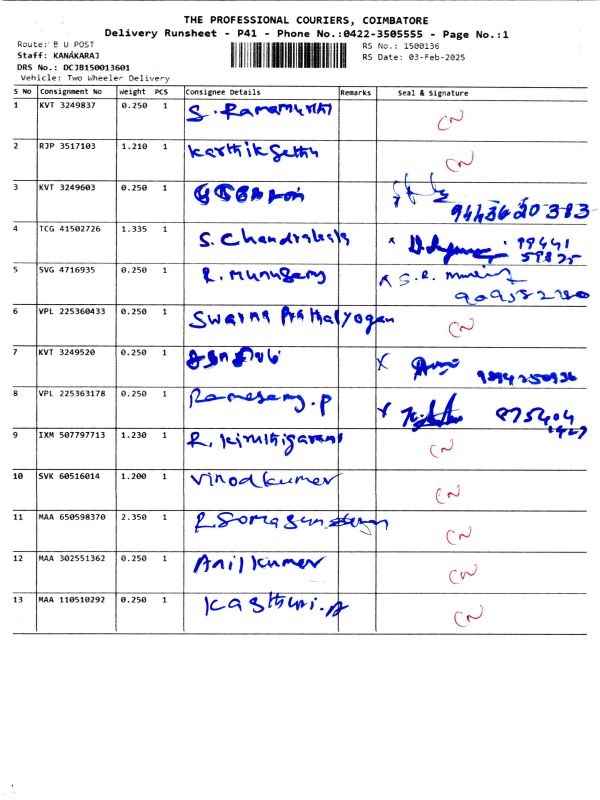 THE PROFESSIONAL COURIERS, COIMBATORE
Delivery Runsheet - P41 - Phone No.:0422-3505555 - Page No.:1
Route: B U POST
RS No.: 1500136
Staff: KANAKARAJ
RS Date: 03-Feb-2025
DRS No.: DCJB150013601
Vehicle: Two Wheeler Delivery
S No Consignment No Weight PCS Consignee Details Remarks Seal & Signature
1 KVT 3249837 0.250 1 S. Ramamurthi CN
2 RJP 3517103 1.210 1 Karthik Sethu CN
3 KVT 3249603 0.250 1 9443620383
4 TCG 41502726 1.335 1 S. Chandralekla x 99441
59825
5 SVG 4716935 0.250 1 R. Murugesan S. R.
6 VPL 225360433 0.250 1 Swarna Prathalyogan CN
7 KVT 3249520 0.250 1 x
8 VPL 225363178 0.250 1 Ramesamy. P x 875404
9 IXM 507797713 1.230 1 R. Kiruthigarani CN
10 SVK 60516014 1.200 1 Vinodkumer CN
11 MAA 650598370 2.350 1 R Somasundaram CN
12 MAA 302551362 0.250 1 Anilkumer CN
13 MAA 110510292 0.250 1 Kasthuri. CN